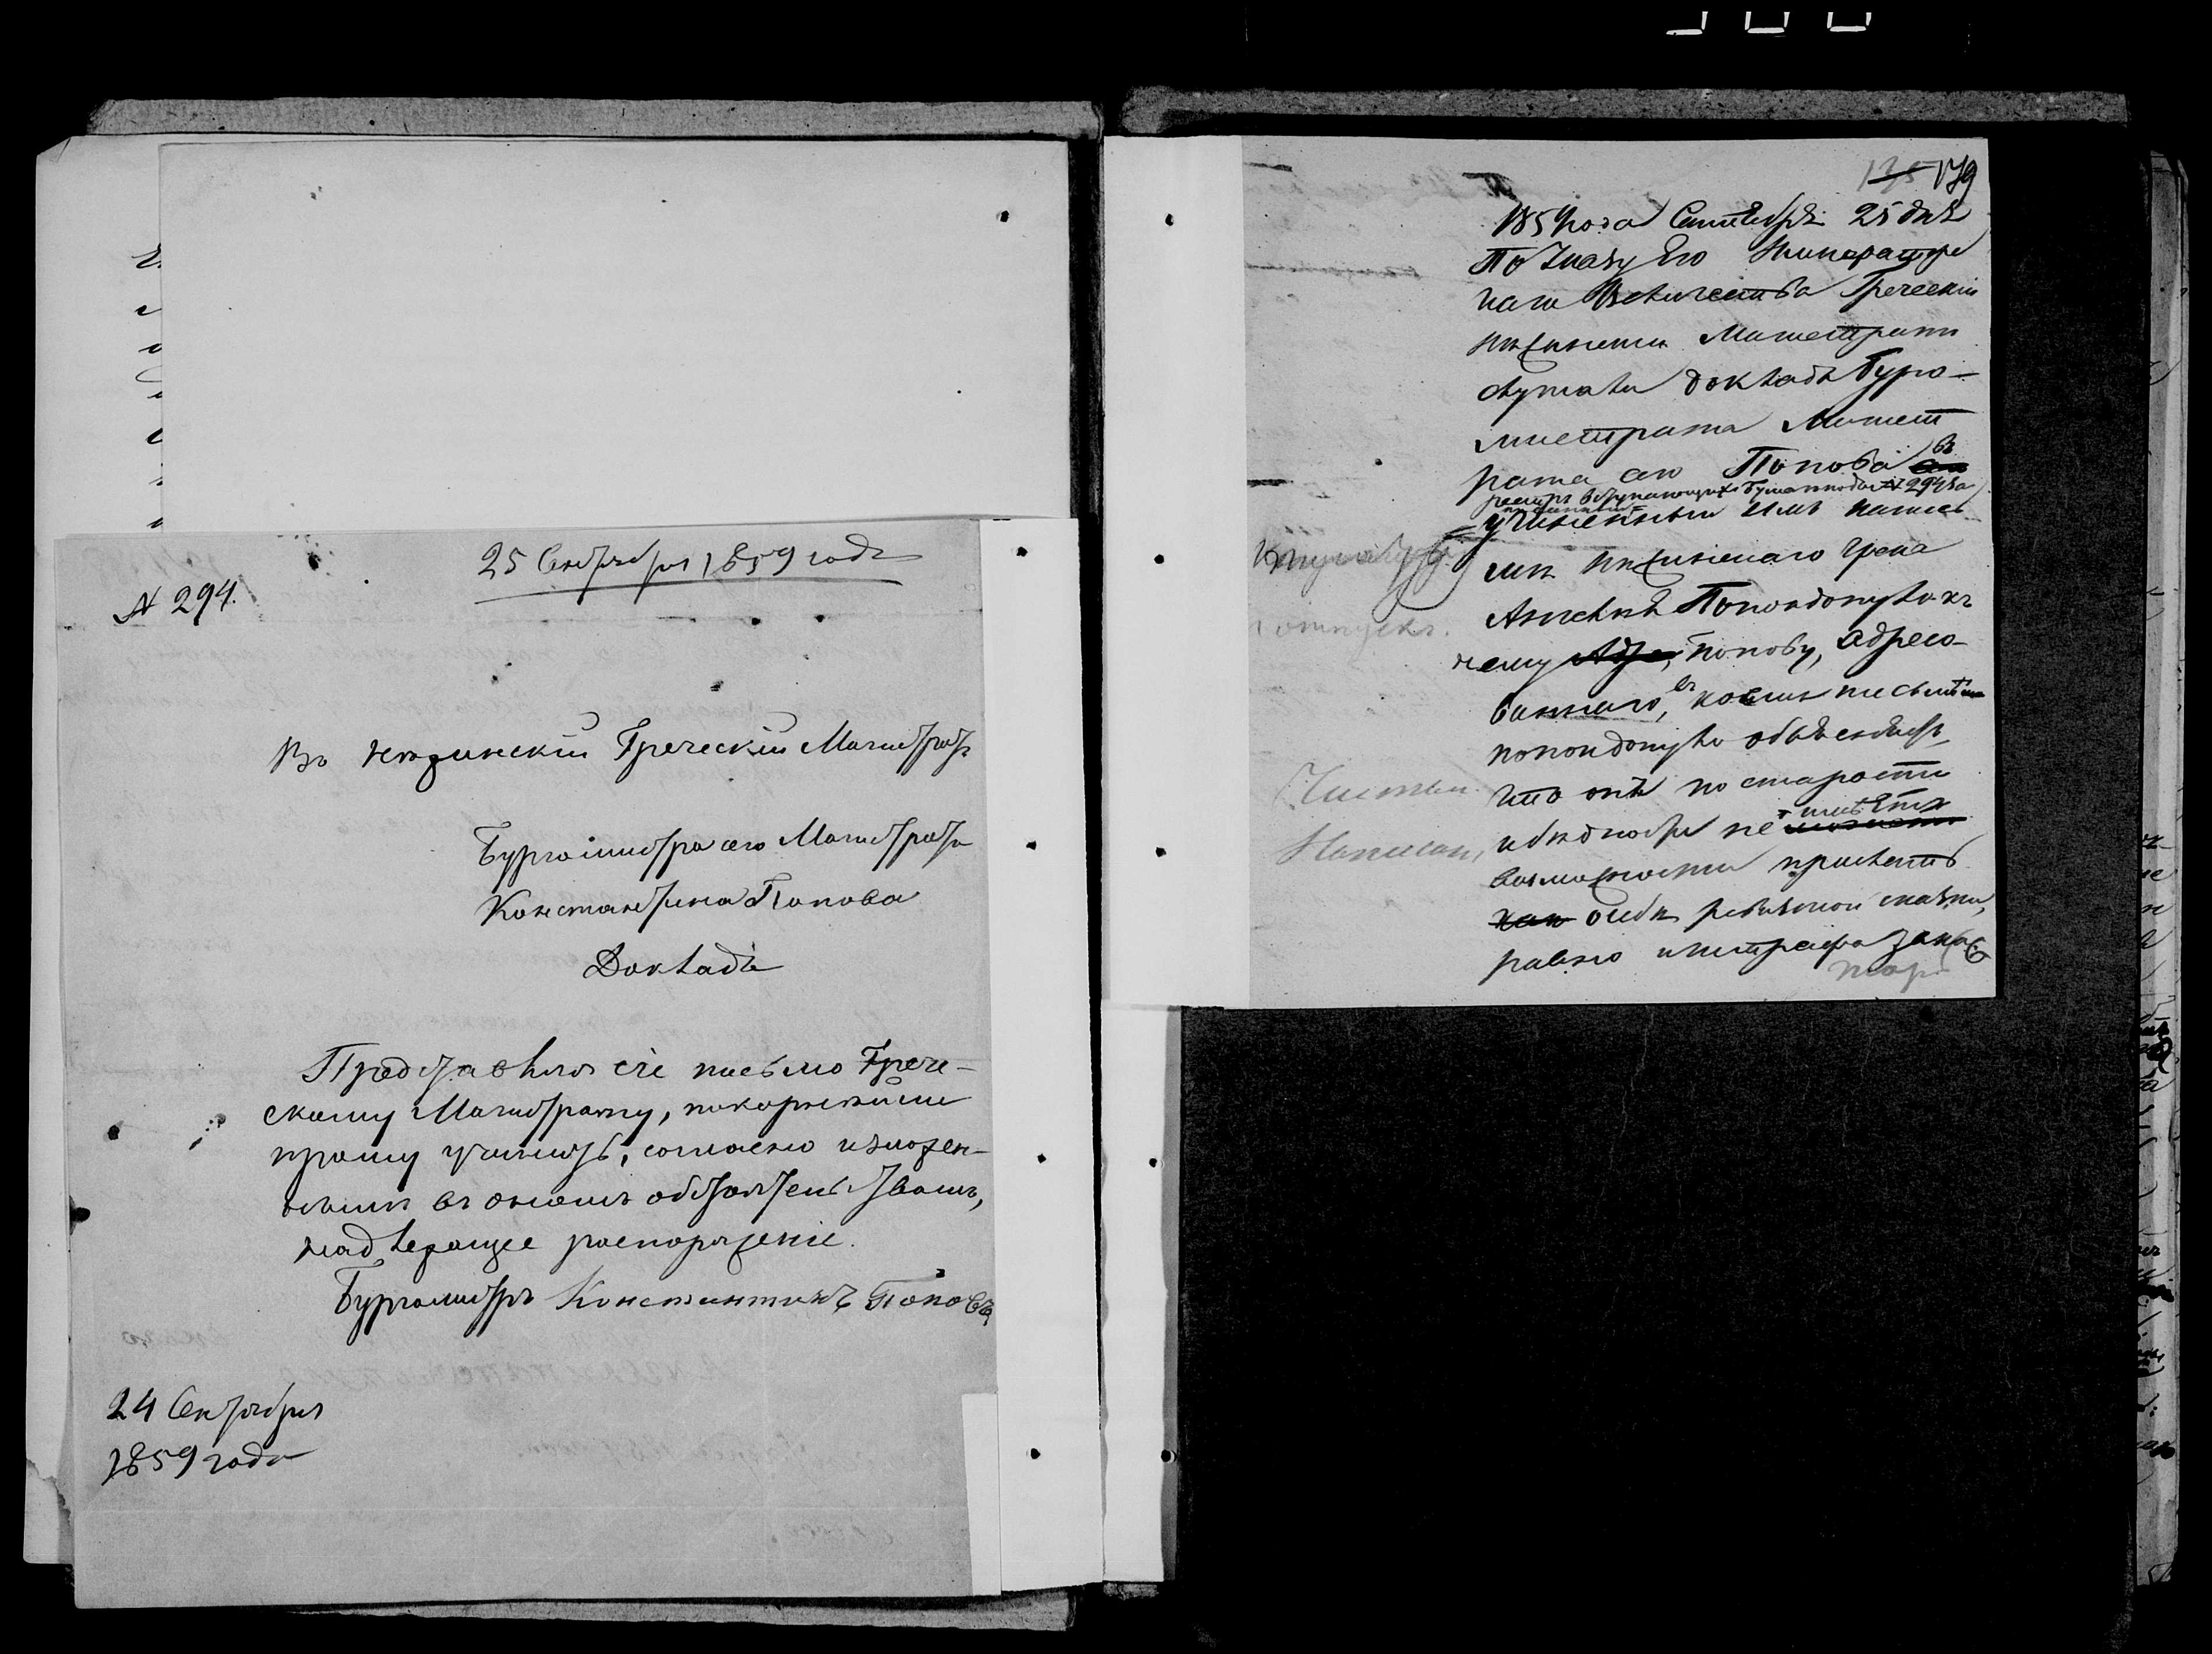 25 Сентября 1859 года
№ 294.
Въ Нѣжинскій Греческій Магистратъ
Бургомистра сего Магистрата
Константина Попова
Докладъ
Представляя сіе письмо Грече-
скому Магистрату, покорнѣйше
прошу учинить, согласно изложен-
нымъ въ ономъ обстоятельствамъ,
надлежащее распоряженіе.
Бургомистръ Константинъ Поповъ
24 Сентября
1859 года
179
1859 года Сентября 25 дня
По Указу Его Императорс
каго Величества Греческій
Нѣжинскій Магистратъ
слушали докладъ Бурго-
мистра Магист
рата сего Попова въ
подъ № 294 за
учиненный имъ
Нѣжинскаго Грека
Попондопуло къ
нему Попову, адресо-
ваннаго, въ коемъ письмѣ
Попондопуло объясняетъ,
что онъ по старости
и бѣдности не имѣетъ
возможности прислать
о себѣ ревизской сказки,
равно и штрафа за